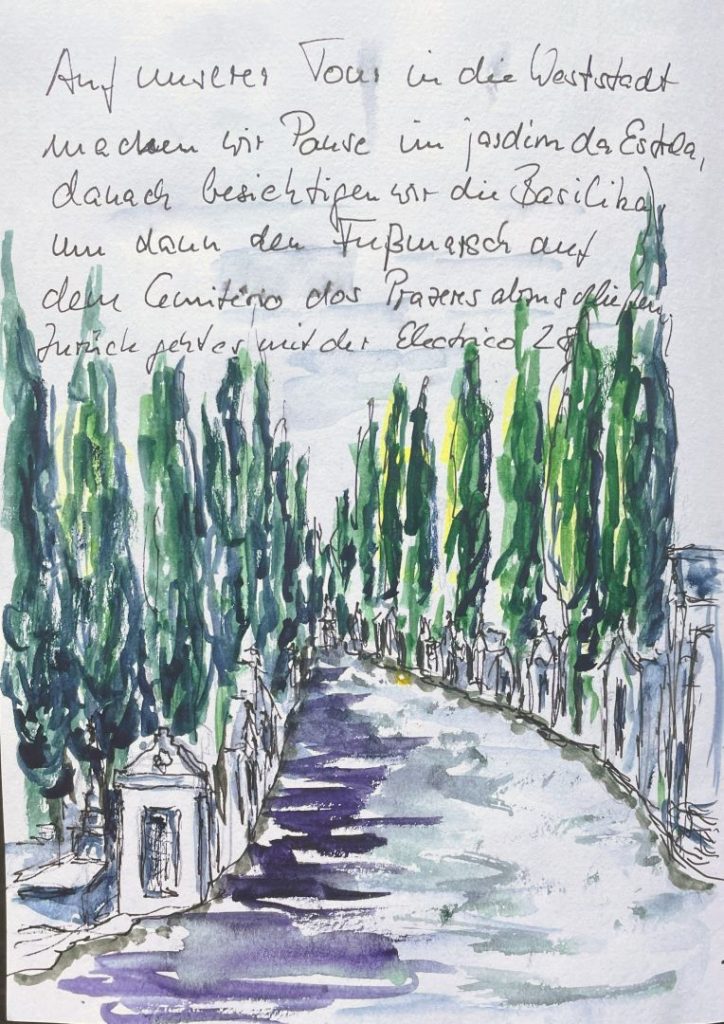 Auf unserer Tour in die Weststadt
machen wir Pause im jardim da Estrela,
danach besichtigen wir die Basilika,
um dann den Fußmarsch auf
dem Cemitério dos Prazeres abzuschließen,
Zurück geht es mit der Electrico 28